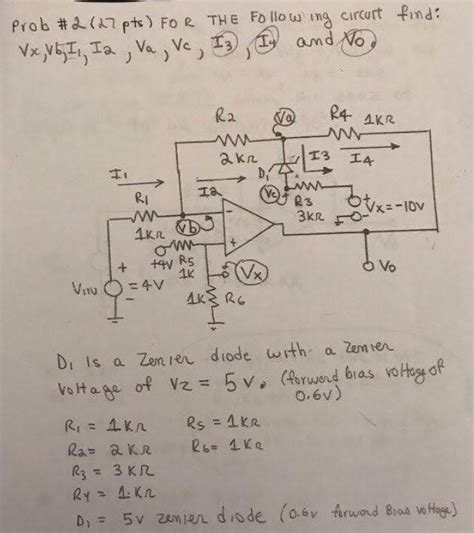 Prob #2 (27 pts) FOR THE Following circuit find:
Vx, Vb, I1, I2, Va, Vc, I3, I4 and Vo.
R2
Va
R4 1KR
2KR
D1
I3
I4
I1
I2
Vc
R3
3KR
+
Vx = -10V
-
R1
1KR
Vb
-
+
+4V
R5
1K
Vx
Vo
+
Vin = 4V
-
1K R6
D1 is a Zenier diode with a Zenier
voltage of Vz = 5V. (forward bias voltage of
0.6V)
R1 = 1KR R5 = 1KR
R2 = 2KR R6 = 1KR
R3 = 3KR
R4 = 1KR
D1 = 5V zenier diode (0.6v forward Bias voltage)